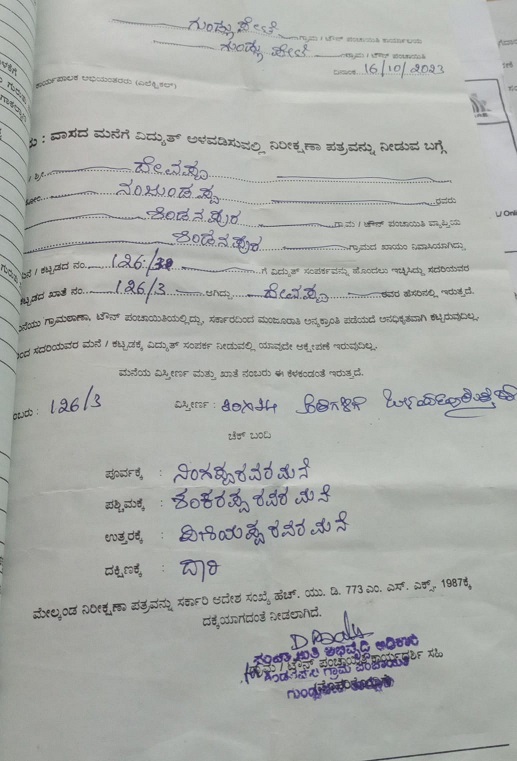 ಗುಂಡ್ಲುಪೇಟೆ ಗ್ರಾಮ / ಟೌನ್ ಪಂಚಾಯಿತಿ ಕಾರ್ಯಾಲಯ
ಗುಂಡ್ಲುಪೇಟೆ ಗ್ರಾಮ / ಟೌನ್ ಪಂಚಾಯಿತಿ
ದಿನಾಂಕ 16/10/2023
ಕಾರ್ಯಪಾಲಕ ಅಭಿಯಂತರರು (ಎಲೆಕ್ಟ್ರಿಕಲ್)
: ವಾಸದ ಮನೆಗೆ ವಿದ್ಯುತ್ ಅಳವಡಿಸುವಲ್ಲಿ ನಿರೀಕ್ಷಣಾ ಪತ್ರವನ್ನು ನೀಡುವ ಬಗ್ಗೆ
/ ಶ್ರೀ. ದೇವಪ್ಪ
ನಂಜುಂಡಪ್ಪ ರವರು
ಗ್ರಾಮ / ಟೌನ್ ಪಂಚಾಯಿತಿ ವ್ಯಾಪ್ತಿಯ
ಗ್ರಾಮದ ಖಾಯಂ ನಿವಾಸಿಯಾಗಿದ್ದು
/ ಕಟ್ಟಡದ ನಂ. 126/ ಗೆ ವಿದ್ಯುತ್ ಸಂಪರ್ಕವನ್ನು ಹೊಂದಲು ಇಚ್ಛಿಸಿದ್ದು ಸದರಿಯವರ
ಕಟ್ಟಡದ ಖಾತೆ ನಂ. 126/3 ಆಗಿದ್ದು ದೇವಪ್ಪ ರವರ ಹೆಸರಿನಲ್ಲಿ ಇರುತ್ತದೆ.
ಮನೆಯು ಗ್ರಾಮಠಾಣಾ, ಟೌನ್ ಪಂಚಾಯಿತಿಯಲ್ಲಿದ್ದು, ಸರ್ಕಾರದಿಂದ ಮಂಜೂರಾತಿ ಪಡೆಯದೆ ಅನಧಿಕೃತವಾಗಿ ಕಟ್ಟಿರುವುದಿಲ್ಲ.
ಸದರಿಯವರ ಮನೆ / ಕಟ್ಟಡಕ್ಕೆ ವಿದ್ಯುತ್ ಸಂಪರ್ಕ ನೀಡುವಲ್ಲಿ ಯಾವುದೇ ಆಕ್ಷೇಪಣೆ ಇರುವುದಿಲ್ಲ.
ಮನೆಯ ವಿಸ್ತೀರ್ಣ ಮತ್ತು ಖಾತೆ ನಂಬರು ಈ ಕೆಳಕಂಡಂತೆ ಇರುತ್ತದೆ.
: 126/3 ವಿಸ್ತೀರ್ಣ :
ಚೆಕ್ ಬಂದಿ
ಪೂರ್ವಕ್ಕೆ : ನಿಂಗಪ್ಪರವರ ಮನೆ
ಪಶ್ಚಿಮಕ್ಕೆ : ಶಂಕರಪ್ಪರವರ ಮನೆ
ಉತ್ತರಕ್ಕೆ : ರವರ ಮನೆ
ದಕ್ಷಿಣಕ್ಕೆ : ದಾರಿ
ಮೇಲ್ಕಂಡ ನಿರೀಕ್ಷಣಾ ಪತ್ರವನ್ನು ಸರ್ಕಾರಿ ಆದೇಶ ಸಂಖ್ಯೆ ಹೆಚ್. ಯು. ಡಿ. 773 ಎಂ. ಎಸ್. ಎಕ್ಸ್. 1987ಕ್ಕೆ
ದಕ್ಕೆಯಾಗದಂತೆ ನೀಡಲಾಗಿದೆ.
ಪಂಚಾಯಿತಿ ಅಭಿವೃದ್ಧಿ ಅಧಿಕಾರಿ
ಗ್ರಾಮ / ಟೌನ್ ಪಂಚಾಯಿತಿ ಕಾರ್ಯದರ್ಶಿ ಸಹಿ
ಗ್ರಾಮ ಪಂಚಾಯಿತಿ